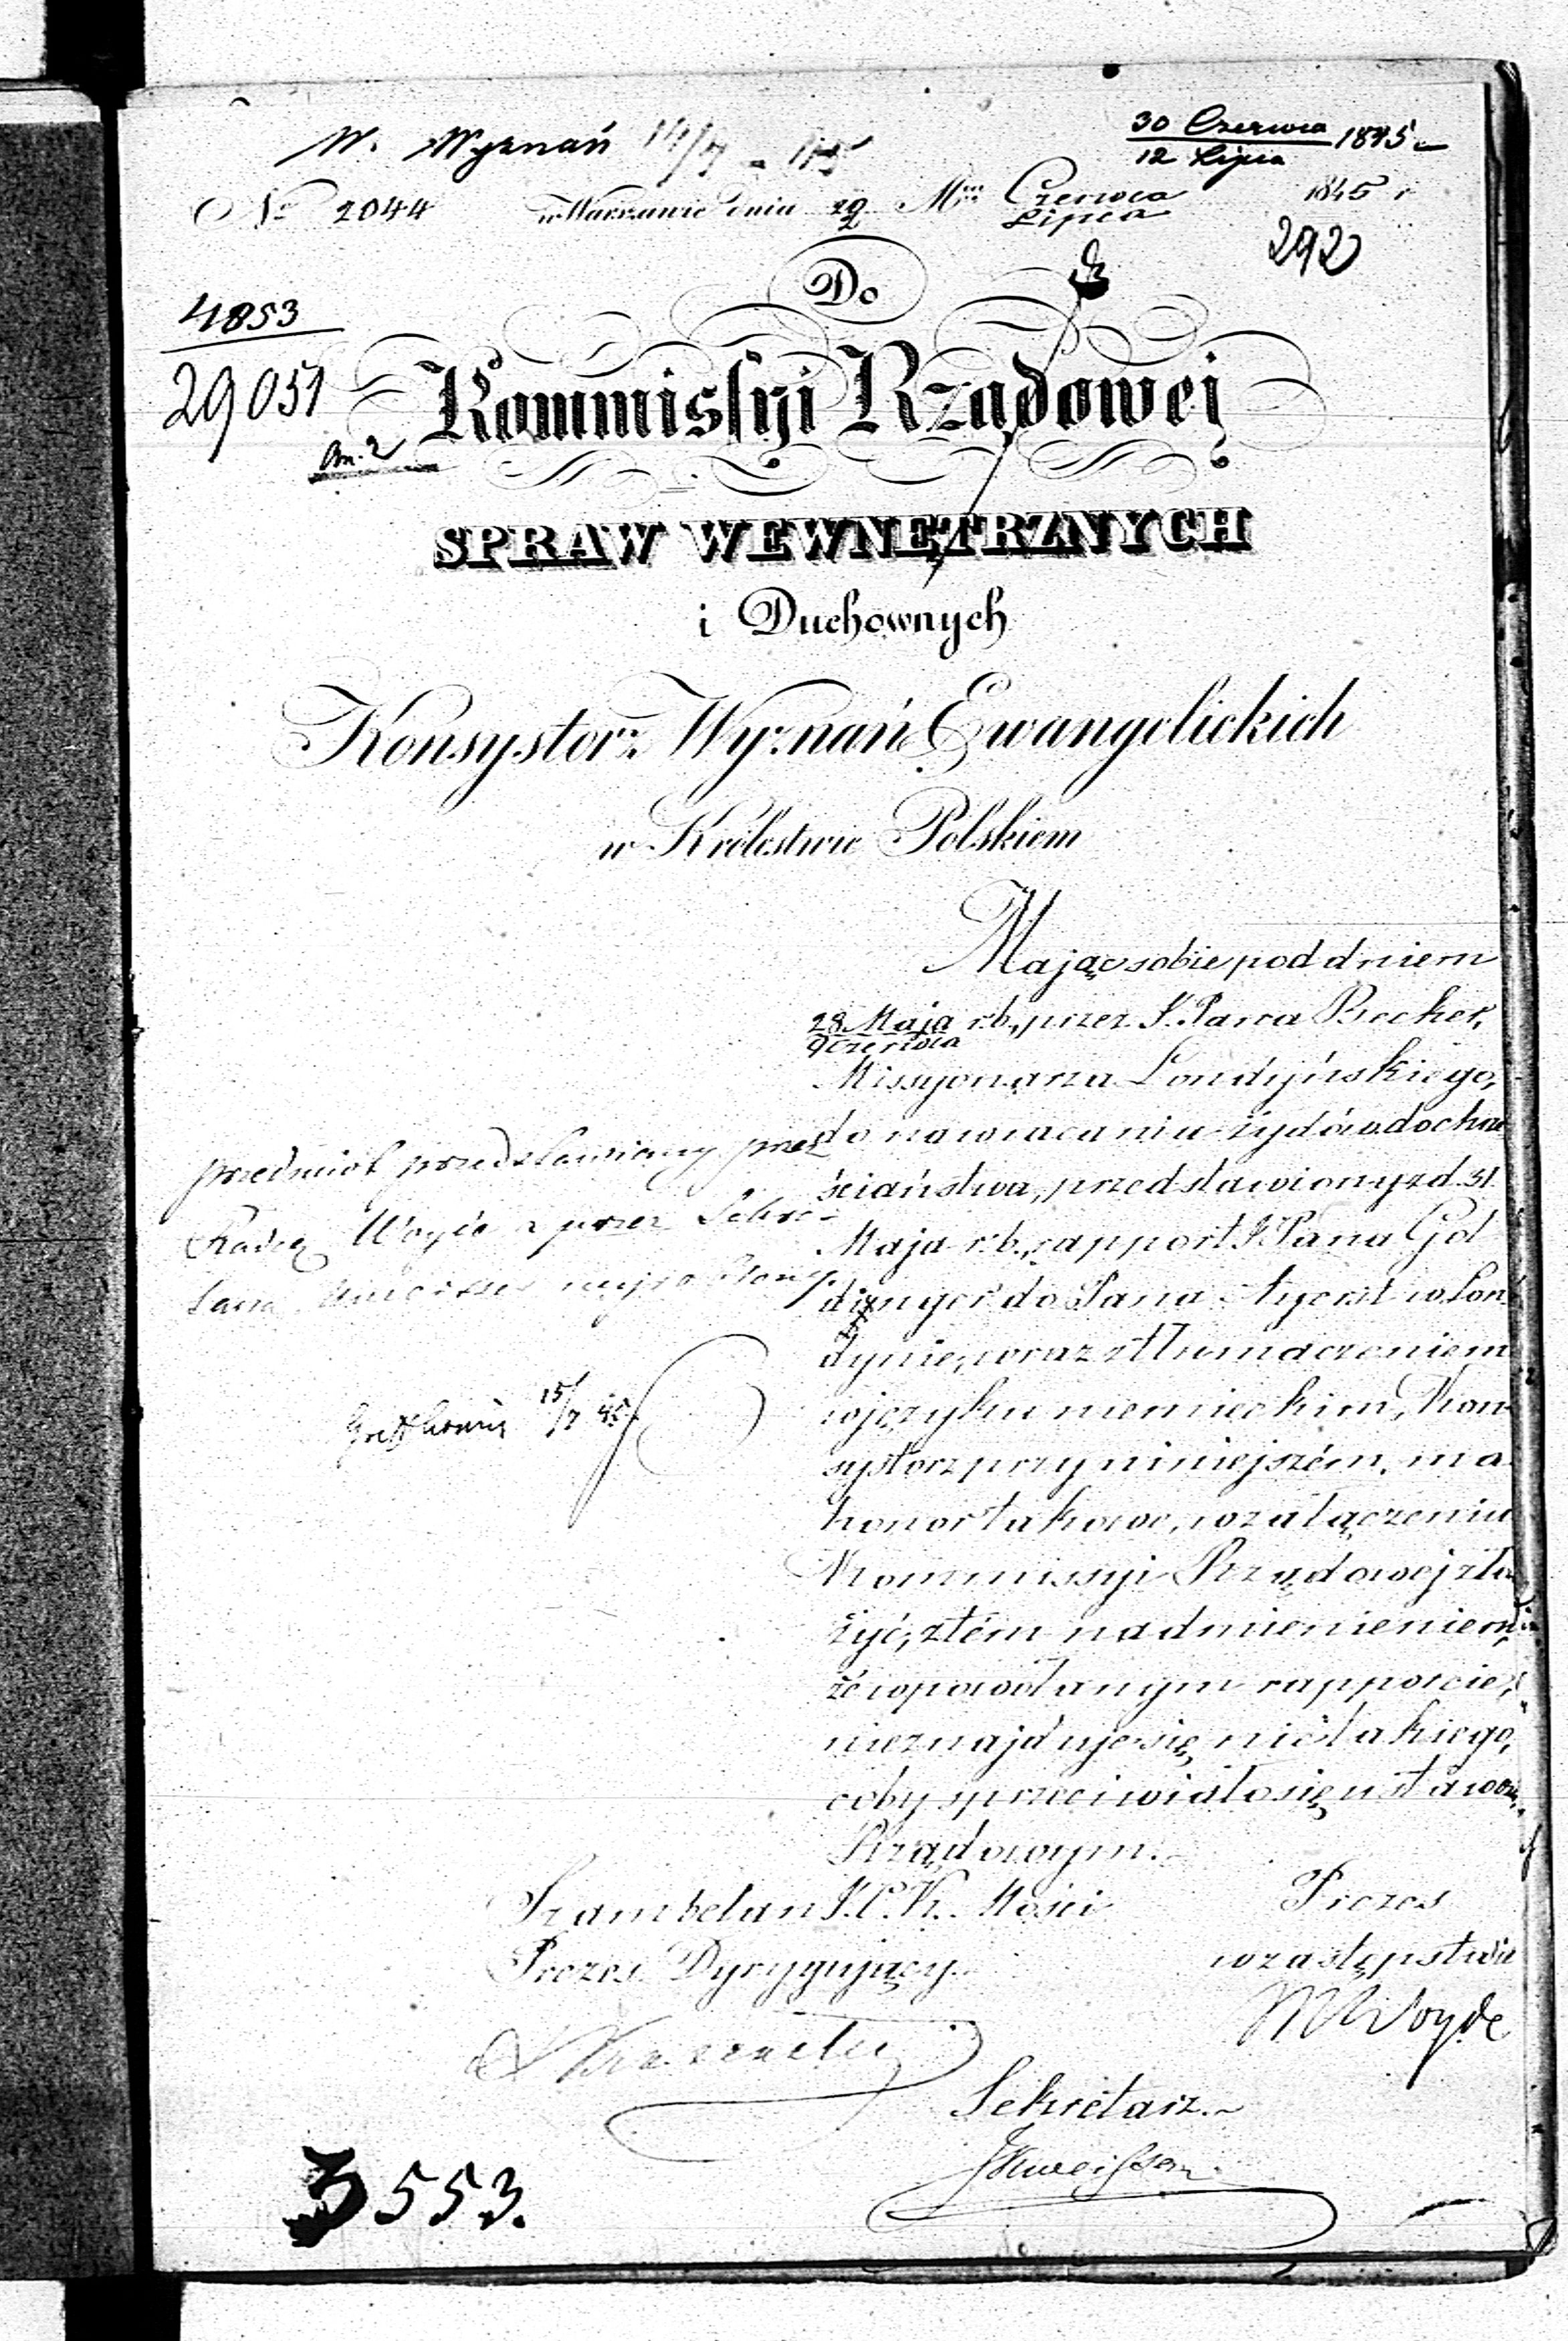 W. Wyznań 14/7 - 45
30 Czerwca / 12 Lipca 1845
№ 2044 w Warszawie dnia 29/2 Mca Czerwca/Lipca 1845 r
292
Do
4853
29051
Kommissyi Rządowej
an. 2
SPRAW WEWNĘTRZNYCH
i Duchownych
Konsystorz Wyznań Ewangelickich
w Królestwie Polskiem
Mając sobie pod dniem
28 Maja / 9 Czerwca r.b., przez J. Pana Becker,
Missyonarza Londyńskiego,
do nawracania żydów do chrze
ściaństwa, przedstawiony z d. 31
Maja r.b., rapport J. Pana Gol
dinger do Pana Ayerst w Lon
dynie, wraz z tłumaczeniem
w języku niemieckim, Kon
systorz przy niniejszém, ma
honor takowe, w załączeniu
Kommissyi Rządowej zło
żyć, z tém nadmienieniem,
że w powołanym rapporcie,
nieznajduje się nic takiego,
coby sprzeciwiało się ustawom
Rządowym.
przedmiot przedstawiony przez
Radcę Woyde i przez Sekre-
tarza
15/7 45
Szambelan J.C.K. Mości
Prezes Dyrygujący
Prezes
w zastępstwie
Woyde
Sekretarz.
3553.